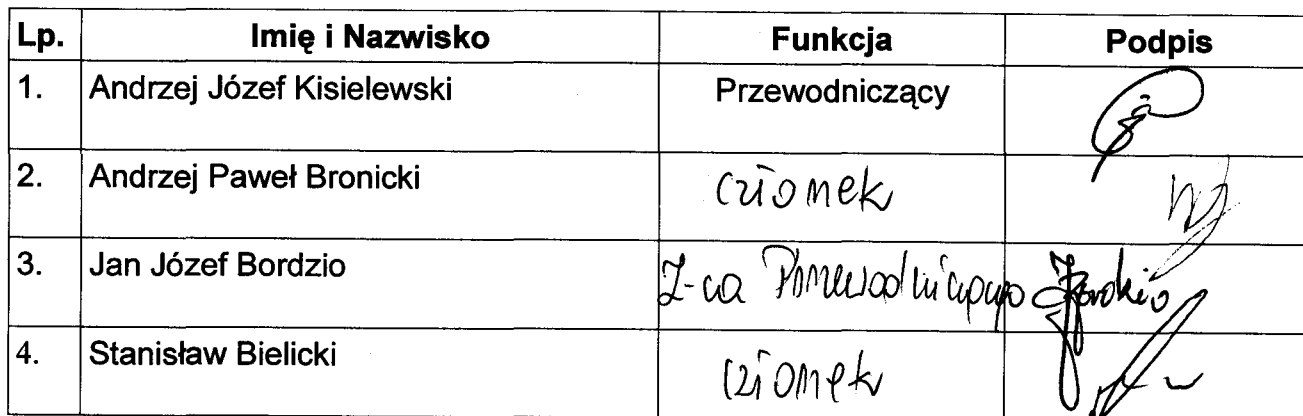 Lp. Imię i Nazwisko Funkcja Podpis
1. Andrzej Józef Kisielewski Przewodniczący
2. Andrzej Paweł Bronicki członek
3. Jan Józef Bordzio Z-ca Przewodniczącego JBordzio
4. Stanisław Bielicki członek